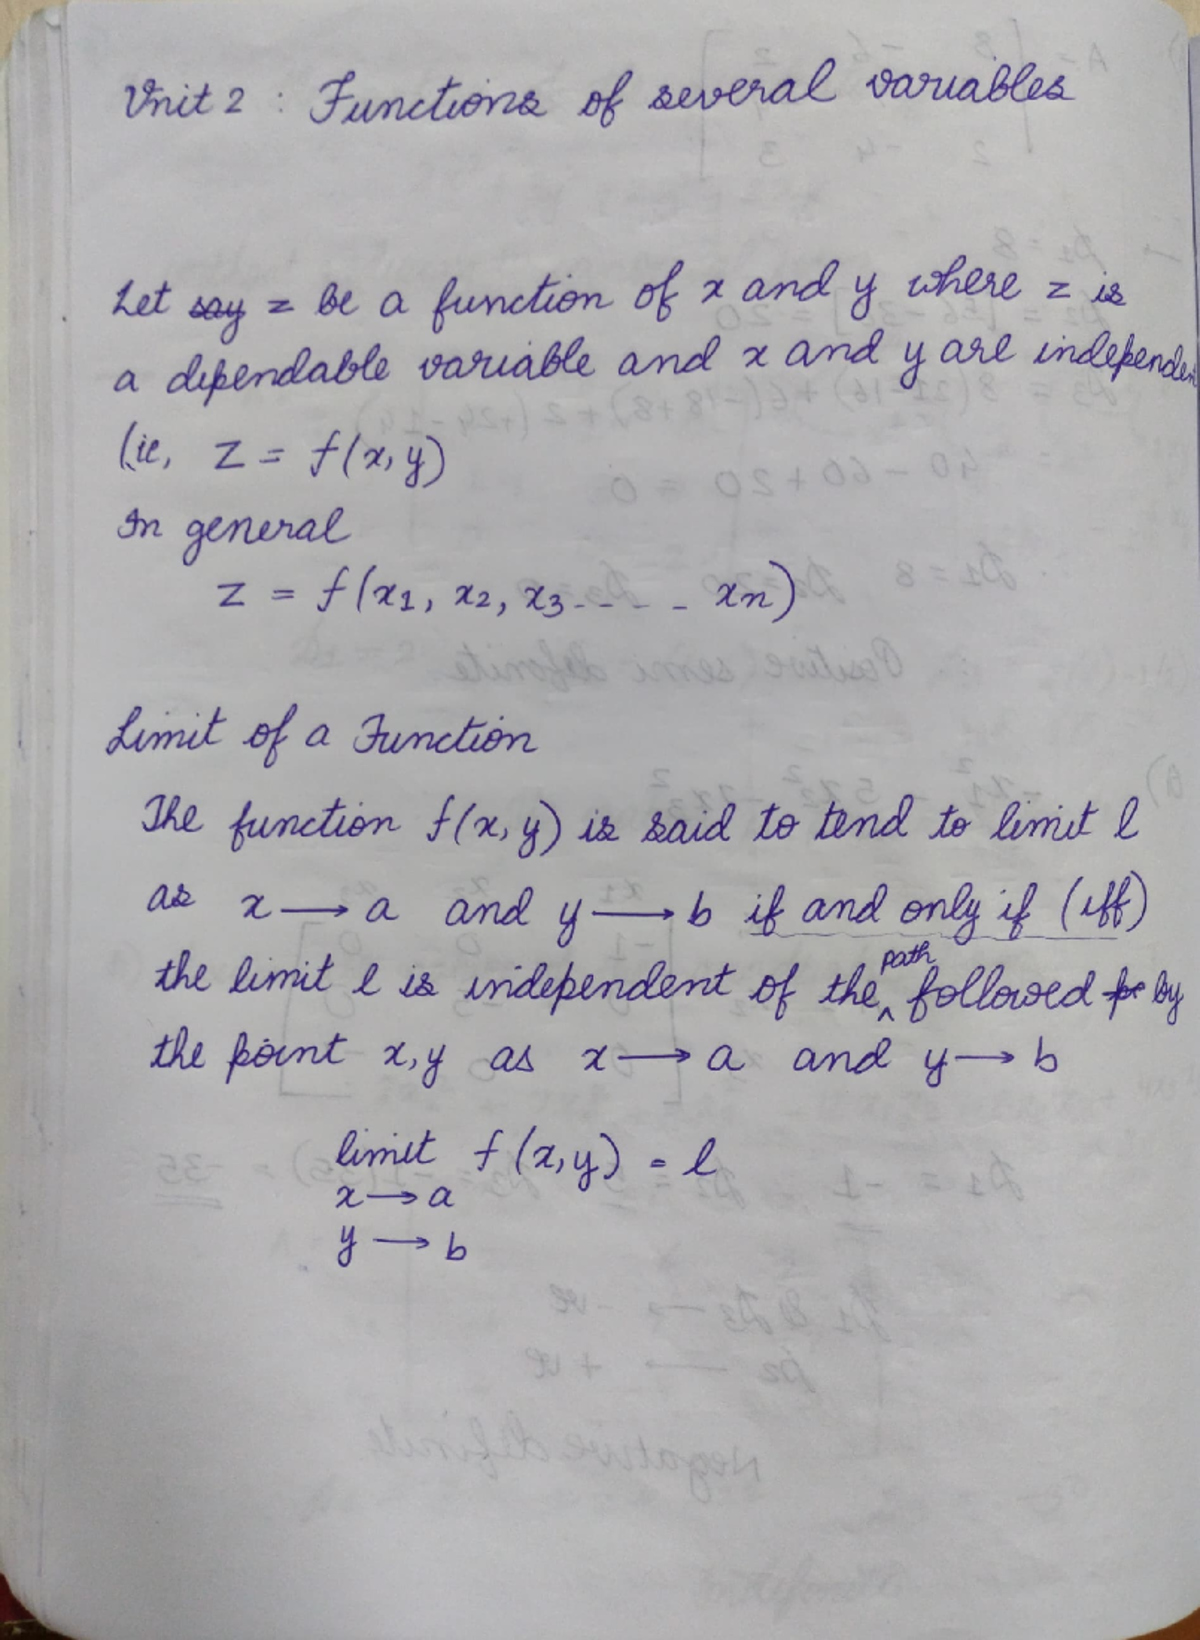 Unit 2 : Functions of several variables
Let say z be a function of x and y where z is
a dependable variable and x and y are independen
(ie, z = f(x, y)
In general
z = f(x1, x2, x3 - - - - xn)
Limit of a Function
The function f(x, y) is said to tend to limit l
as x → a and y → b if and only if (iff)
the limit l is independent of the path followed by
the point x, y as x → a and y → b
limit f(x, y) = l
x → a
y → b